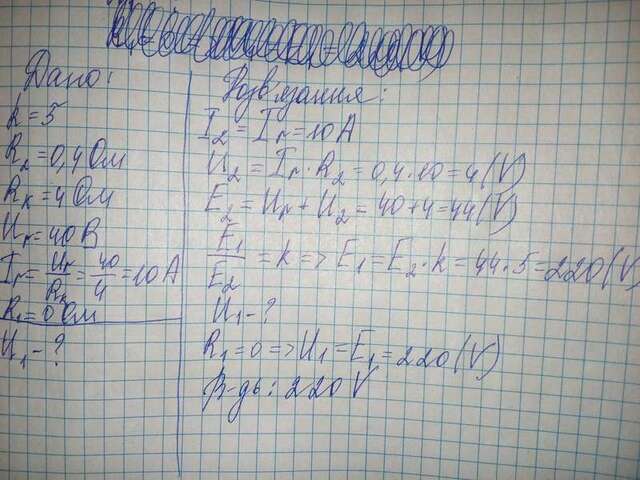 Дано:
k=5
R₂=0,4 Ом
Rк=4 Ом
Uн=40 В
Iн=Uн/Rк=40/4=10 А
R₁=0 Ом
U₁-?
Розв'язання:
I₂=Iн=10 А
U₂=Iн·R₂=0,4·10=4(V)
E₂=Uн+U₂=40+4=44(V)
E₁/E₂=k=>E₁=E₂·k=44·5=220(V)
U₁-?
R₁=0=>U₁=E₁=220(V)
В-дь: 220 V